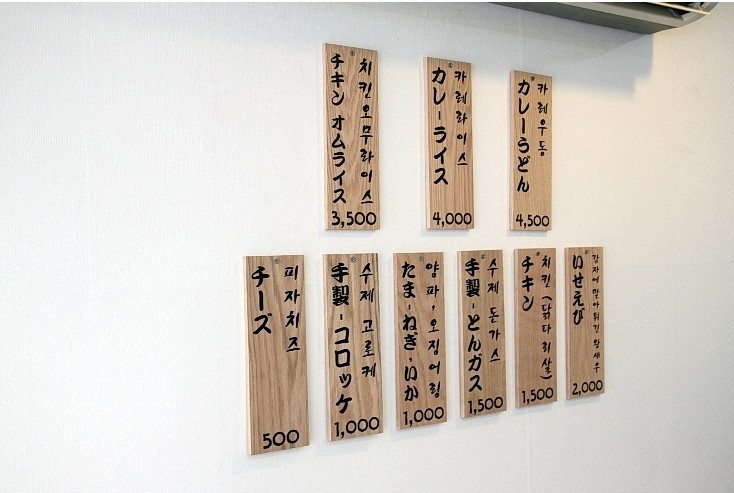 치킨오므라이스
チキン オムライス
3,500
카레라이스
カレーライス
4,000
카레우동
カレーうどん
4,500
피자치즈
チーズ
500
수제 고로케
手製-コロッケ
1,000
양파, 오징어링
たま-ねぎ,いか
1,000
수제 돈가스
手製-とんガス
1,500
치킨 (닭다리살)
チキン
1,500
감자에 말아튀긴 왕새우
いせえび
2,000